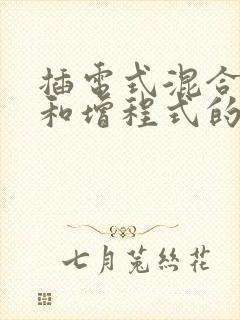 插电式混合
和增程式的
七月菟丝花